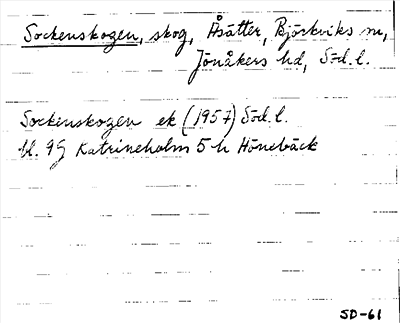 Sockenskogen, skog, Åsätter, Björkviks sn,
Jönåkers hd, Söd. l.
Sockenskogen ek (1957) Söd. l.
bl. 9G Katrineholm 5 h Hönebäck
SD-61